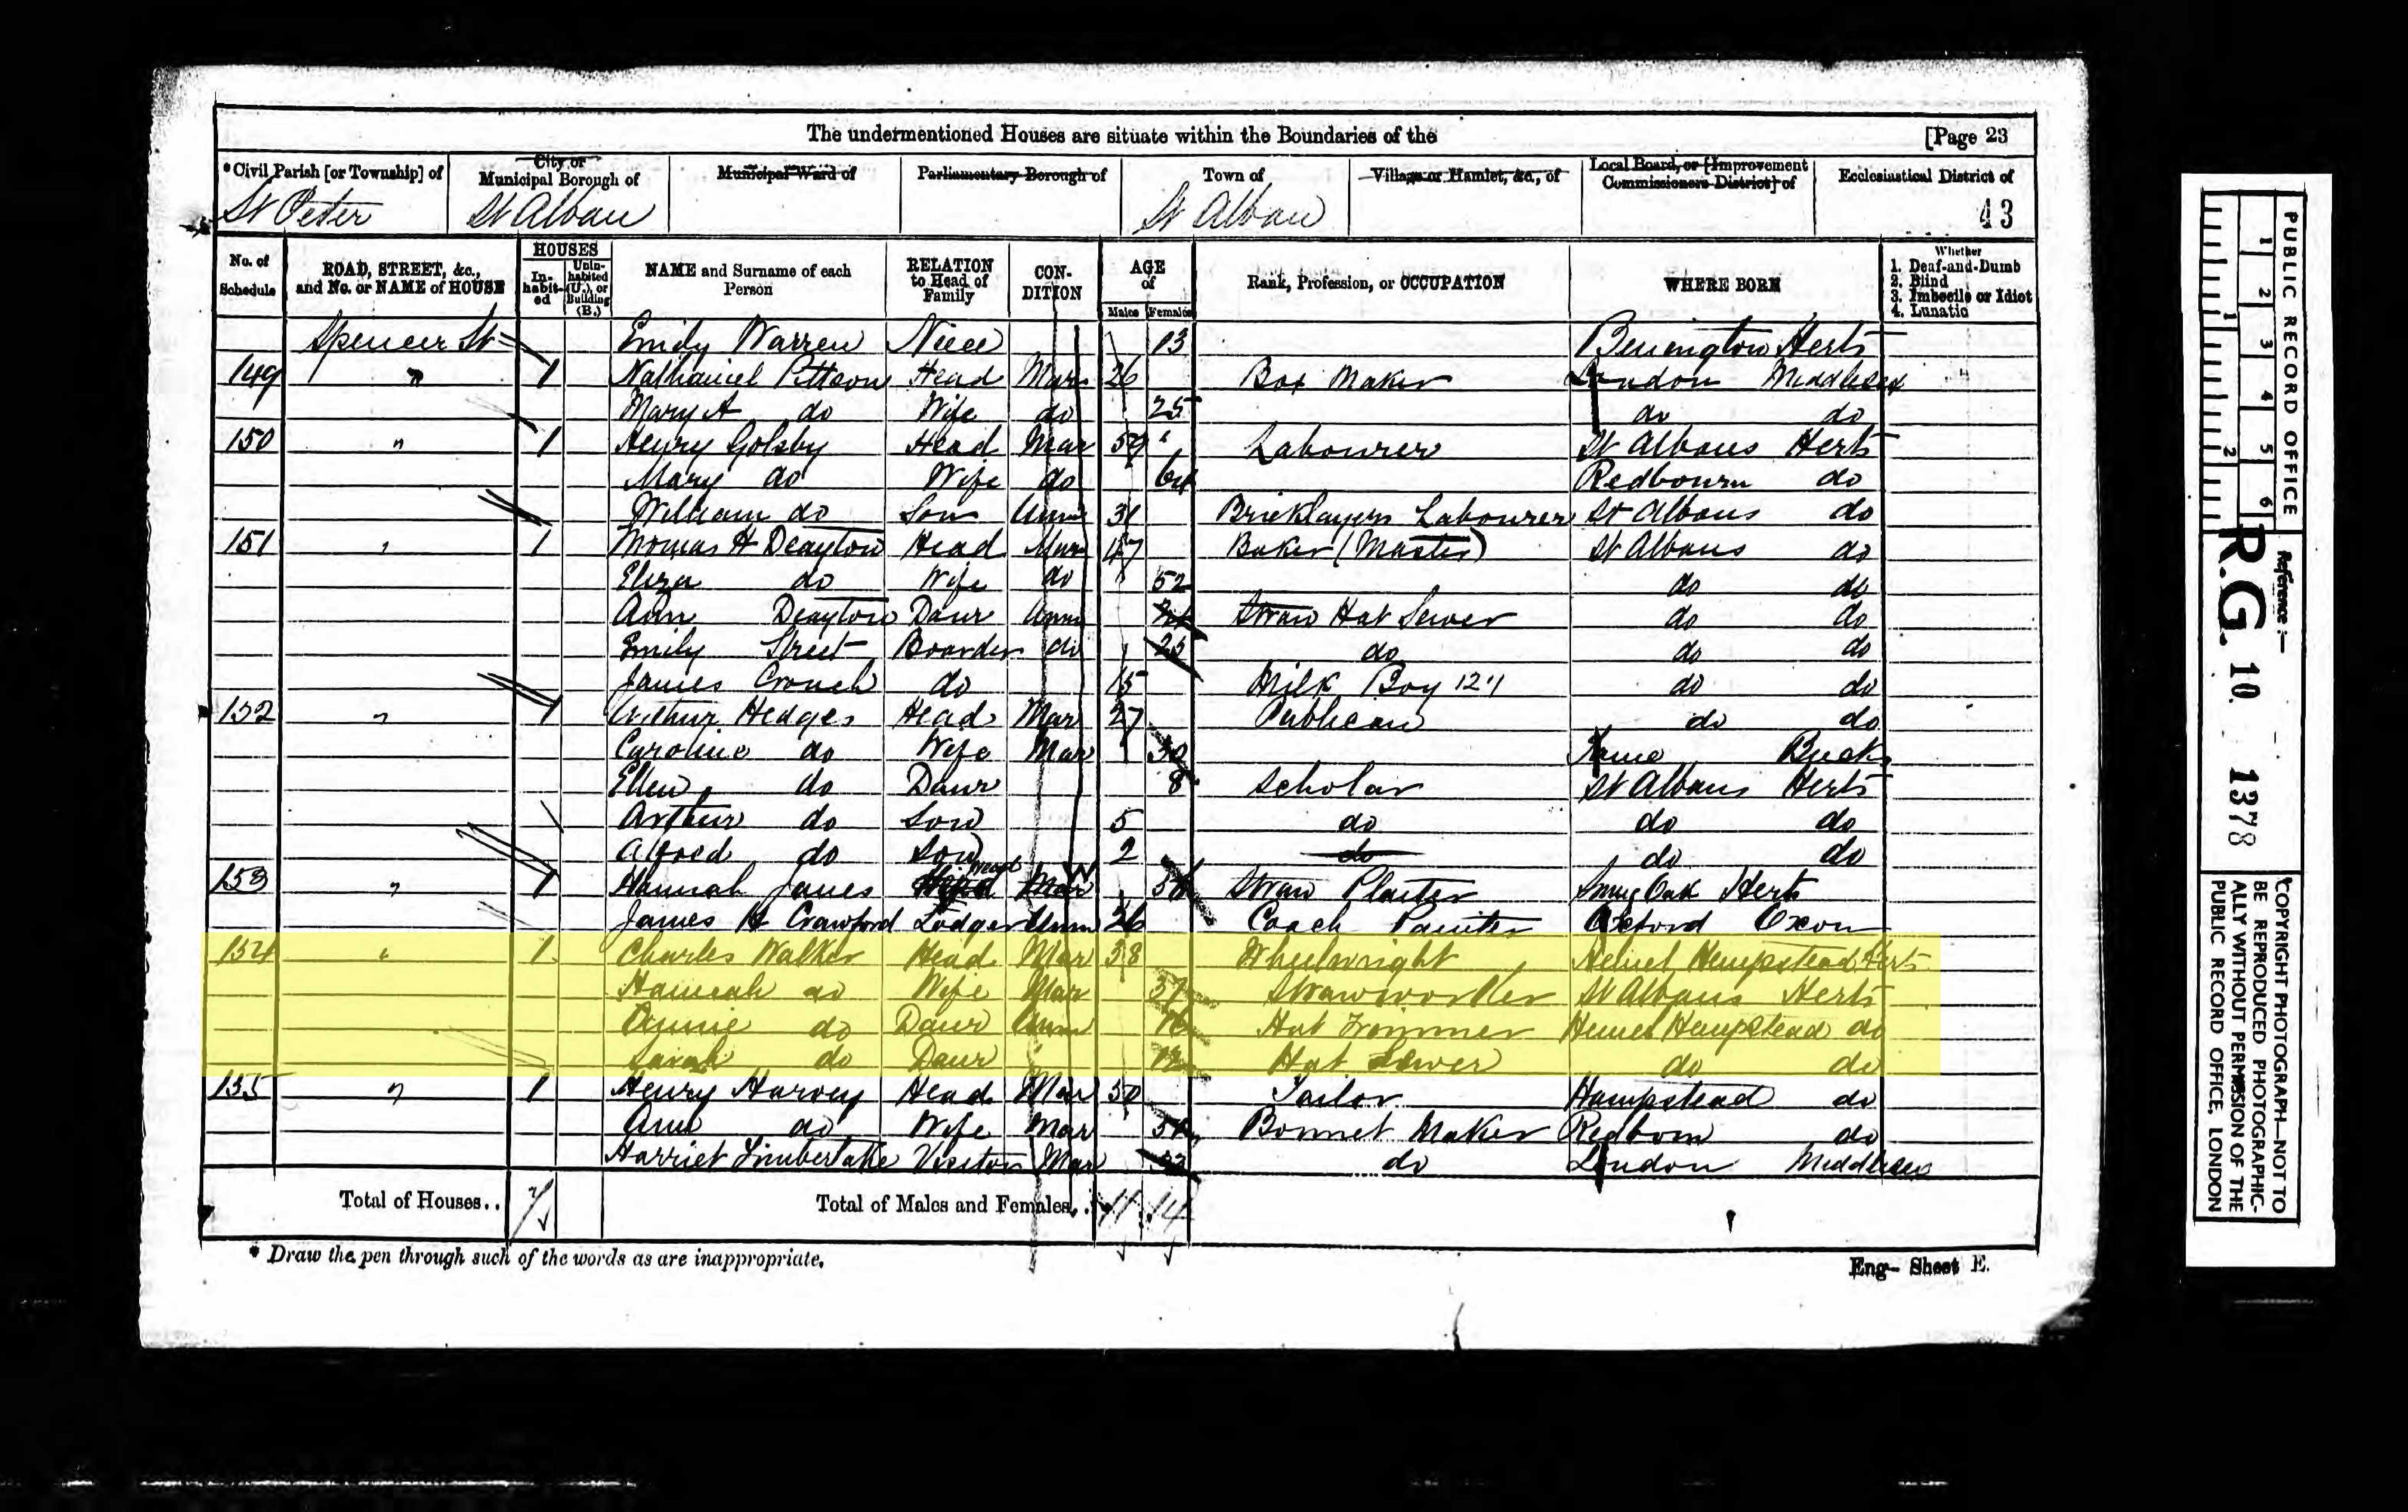 The undermentioned Houses are situate within the Boundaries of the [Page 23
*Civil Parish [or Township] of
St Peter
City or Municipal Borough of
St Alban
Municipal Ward of
Parliamentary Borough of
Town of
St Alban
Village or Hamlet, &c., of
Local Board, or [Improvement Commissioners District] of
Ecclesiastical District of
43
No. of Schedule
ROAD, STREET, &c., and No. or NAME of HOUSE
HOUSES
In-habit-ed
Unin-habited (U.), or Building (B.)
NAME and Surname of each Person
RELATION to Head of Family
CON-DITION
AGE of
Males Females
Rank, Profession, or OCCUPATION
WHERE BORN
Whether
1. Deaf-and-Dumb
2. Blind
3. Imbecile or Idiot
4. Lunatic
Spencer St Emily Warren Niece 13 Benington Herts
149 " 1 Nathaniel Head Mar 26 Box Maker London Middlesex
Mary A do Wife do 25 do do
150 " 1 Henry Golsby Head Mar 59 Labourer St Albans Herts
Mary do Wife do Redbourn do
William do Son Unm 31 Bricklayers Labourer St Albans do
151 " 1 Thomas H Deayton Head Mar 47 Baker (Master) St Albans do
Eliza do Wife do 52 do do
Ann Deayton Daur Unm Straw Hat Sewer do do
Emily Street Boarder do 25 do do do
James Crouch do 15 Milk Boy do do
152 " 1 Arthur Hedges Head Mar 27 Publican do do
Caroline do Wife Mar 30 Bucks
Ellen do Daur 8 Scholar St Albans Herts
Arthur do Son 5 do do do
Alfred do Son 2 do do do
153 " 1 Hannah Janes Head W Straw Plaiter Smug Oak Herts
James H Crawford Lodger Unm 26 Coach Painter Oxford Oxon
154 " 1 Charles Walker Head Mar 38 Wheelwright Hemel Hempstead Herts
Hannah do Wife Mar 37 Strawworker St Albans Herts
Annie do Daur Unm 16 Hat Trimmer Hemel Hempstead do
Sarah do Daur Hat Sewer do do
155 " 1 Henry Harvey Head Mar 50 Tailor Hampstead do
Ann do Wife Mar Bonnet Maker Redborn do
Harriet Timberlake Visitor Mar do London Middlesex
Total of Houses.. 7 Total of Males and Females.. 11 14
* Draw the pen through such of the words as are inappropriate.
Eng- Sheet E.
PUBLIC RECORD OFFICE
1 2 3 4 5 6
1 2
Reference:—
R.G. 10 1378
COPYRIGHT PHOTOGRAPH—NOT TO
BE REPRODUCED PHOTOGRAPHIC-
ALLY WITHOUT PERMISSION OF THE
PUBLIC RECORD OFFICE, LONDON